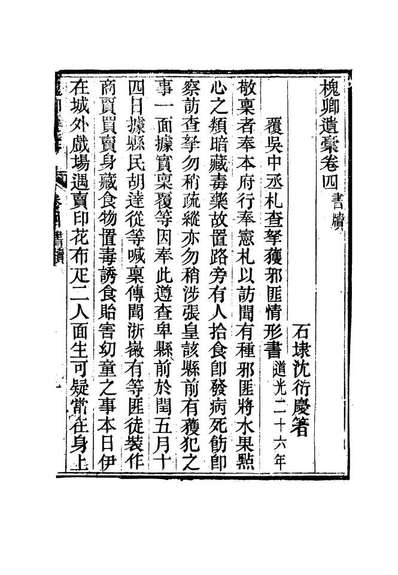 槐卿遺稾卷四 書牘
石埭沈衍慶著
覆吳中丞札查拏獲邪匪情形書 道光二十六年
敬稟者奉本府行奉憲札以訪聞有種邪匪將水果點
心之類暗藏毒藥故置路旁有人拾食卽發病死飭卽
察訪查拏勿稍疏縱亦勿稍涉張皇該縣前有獲犯之
事一面據實稟覆等因奉此遵查卑縣前於閏五月十
四日據縣民胡達從等喊稟傳聞浙徽有等匪徒裝作
商賈買賣身藏食物置毒誘食貽害幼童之事本日伊
在城外戲場遇賣印花布疋二人面生可疑當在身上